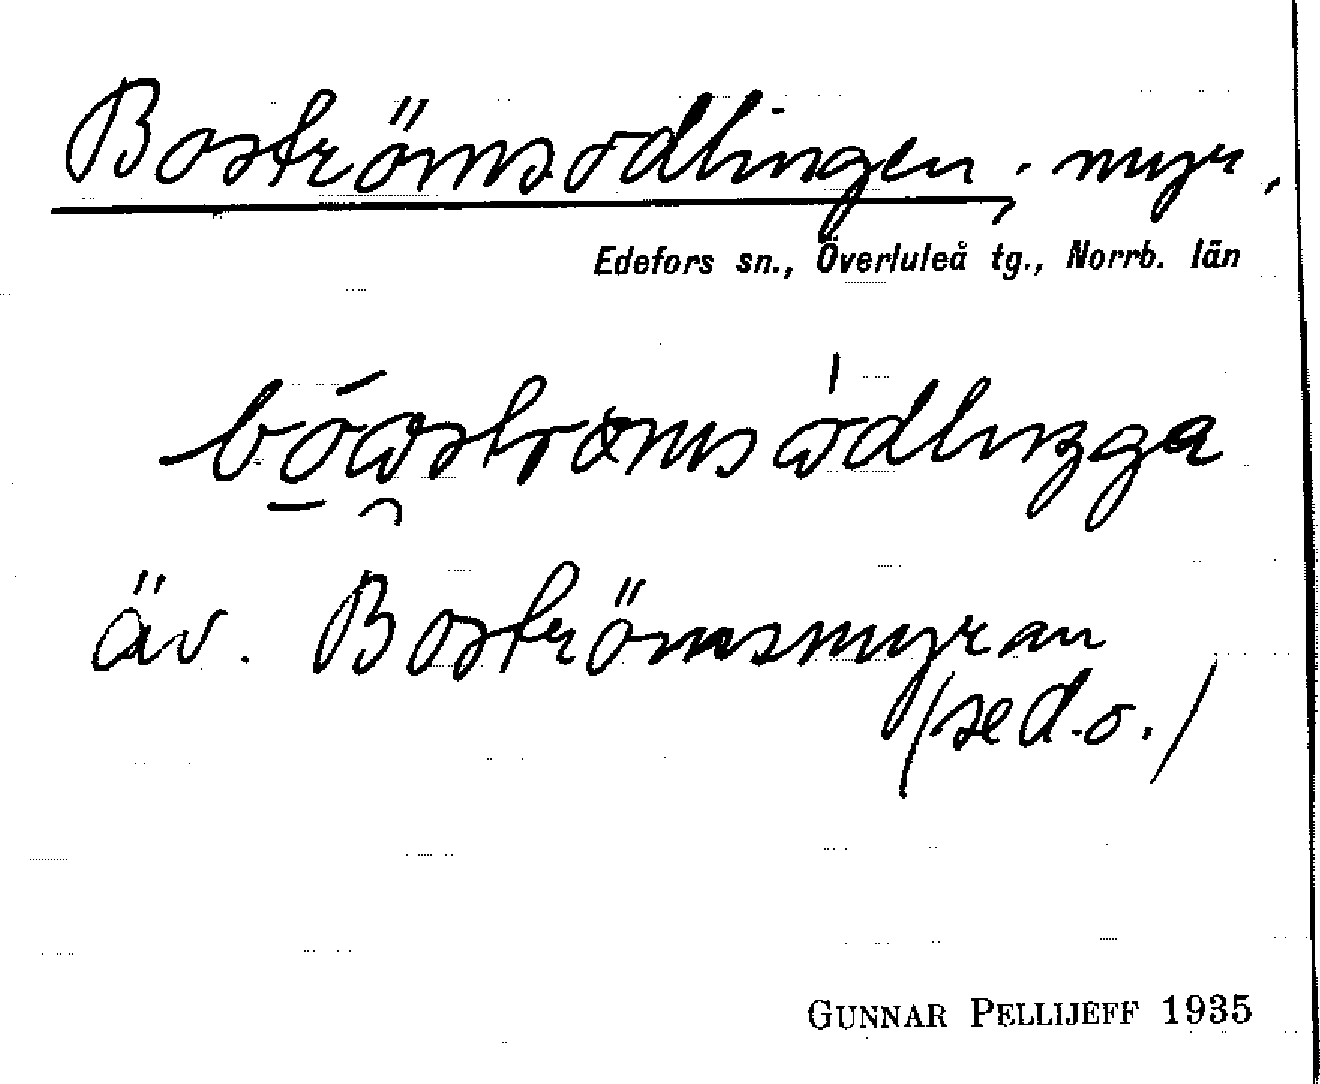 Boströmsodlingen, myr,
Edefors sn., Överluleå tg., Norrb. län
äv. Boströmsmyran
(se d. o.)
GUNNAR PELLIJEFF 1935